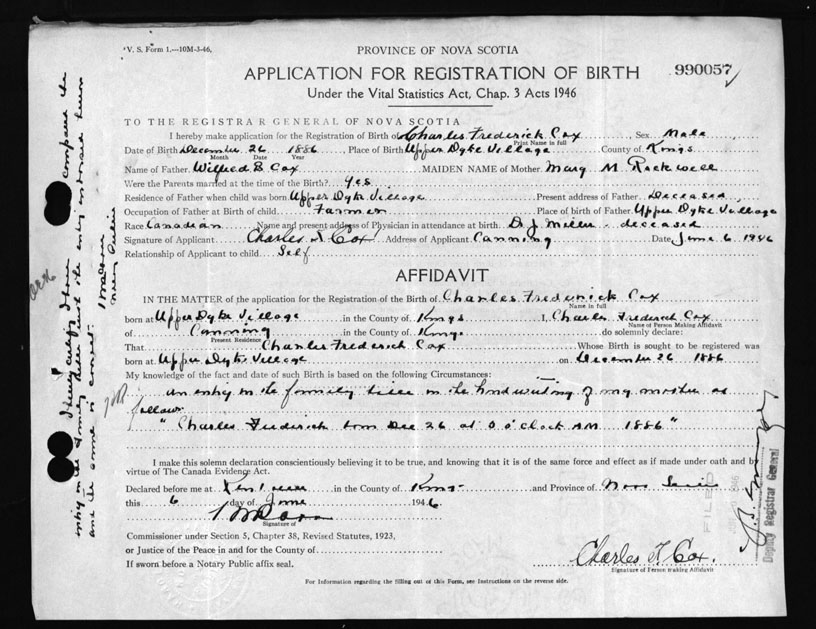 V. S. Form 1.—10M-3-46,
PROVINCE OF NOVA SCOTIA
APPLICATION FOR REGISTRATION OF BIRTH
990057
Under the Vital Statistics Act, Chap. 3 Acts 1946
TO THE REGISTRAR GENERAL OF NOVA SCOTIA
I hereby make application for the Registration of Birth of Charles Frederick Cox, Sex Male
Print Name in full
Date of Birth December 26 1886, Place of Birth Upper Dyke Village County of Kings
Month Date Year
Name of Father Wilfred B Cox, MAIDEN NAME of Mother Mary M Rockwell
Were the Parents married at the time of the Birth? Yes
Residence of Father when child was born Upper Dyke Village Present address of Father Deceased
Occupation of Father at Birth of child Farmer Place of birth of Father Upper Dyke Village
Race Canadian Name and present address of Physician in attendance at birth D. J. Miller - deceased
Signature of Applicant Charles F Cox Address of Applicant Canning Date June 6 1946
Relationship of Applicant to child Self
AFFIDAVIT
IN THE MATTER of the application for the Registration of the Birth of Charles Frederick Cox
Name in full
born at Upper Dyke Village in the County of Kings I, Charles Frederick Cox
Name of Person Making Affidavit
of Canning in the County of Kings do solemnly declare:
Present Residence
That Charles Frederick Cox Whose Birth is sought to be registered was
born at Upper Dyke Village on December 26 1886
My knowledge of the fact and date of such Birth is based on the following Circumstances:
an entry in the family bible in the handwriting of my mother as
follows
" Charles Frederick born Dec 26 at o'clock AM 1886 "
I make this solemn declaration conscientiously believing it to be true, and knowing that it is of the same force and effect as if made under oath and by
virtue of The Canada Evidence Act.
Declared before me at in the County of Kings and Province of Nova Scotia
this 6 day of June 1946
Signature of
Commissioner under Section 5, Chapter 38, Revised Statutes, 1923,
or Justice of the Peace in and for the County of
If sworn before a Notary Public affix seal.
Charles F Cox.
Signature of Person making Affidavit
For Information regarding the filling out of this Form, see Instructions on the reverse side.
I hereby certify I have compared the
entry in the family bible and the entry endorsed hereon
and the same is correct.
Notary Public
FILED
Deputy Registrar General